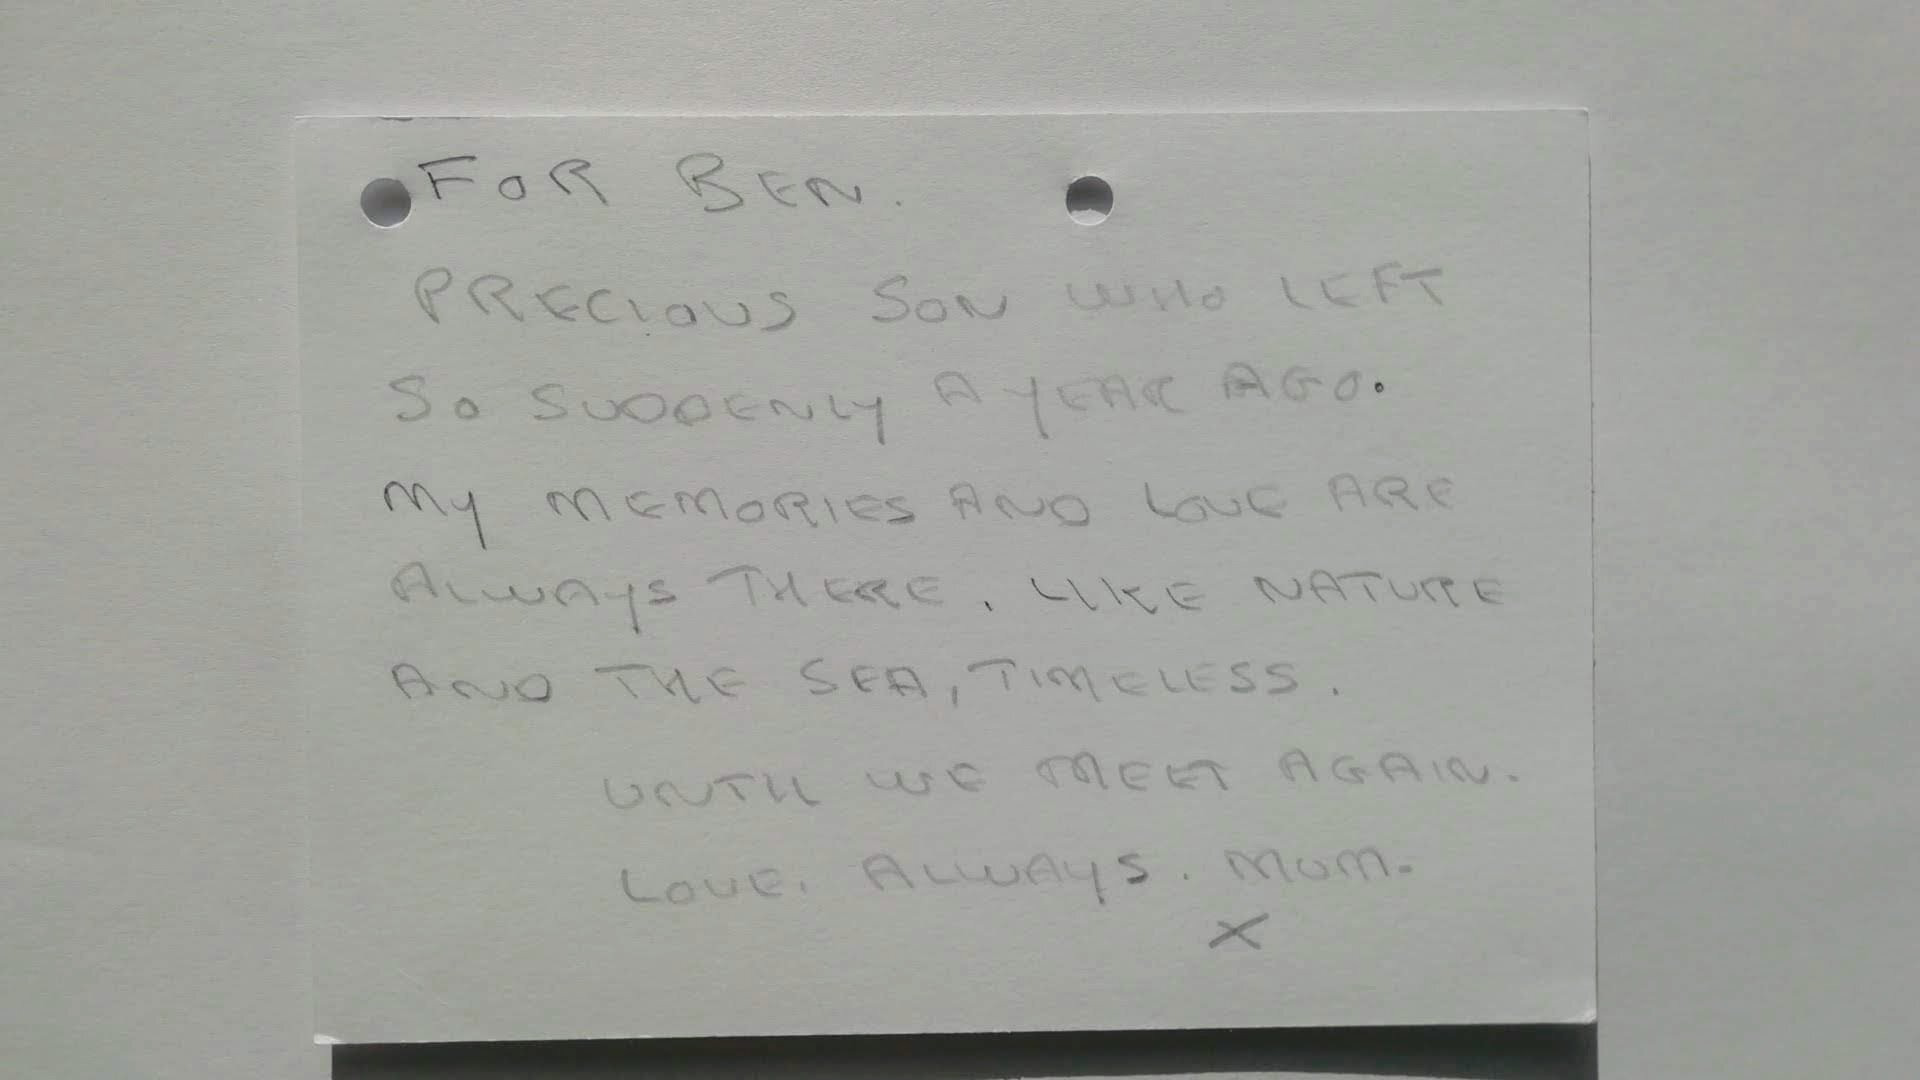 FOR BEN.
PRECIOUS SON WHO LEFT
SO SUDDENLY A YEAR AGO.
MY MEMORIES AND LOVE ARE
ALWAYS THERE. LIKE NATURE
AND THE SEA, TIMELESS.
UNTIL WE MEET AGAIN.
LOVE. ALWAYS. MUM.
X